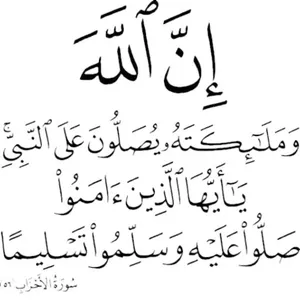 إِنَّ ٱللَّهَ
وَمَلَـٰٓئِكَتَهُۥ يُصَلُّونَ عَلَى ٱلنَّبِىِّ ۚ
يَـٰٓأَيُّهَا ٱلَّذِينَ ءَامَنُوا۟
صَلُّوا۟ عَلَيْهِ وَسَلِّمُوا۟ تَسْلِيمًا
سُورَةُ الأَحْزَابِ ٥٦